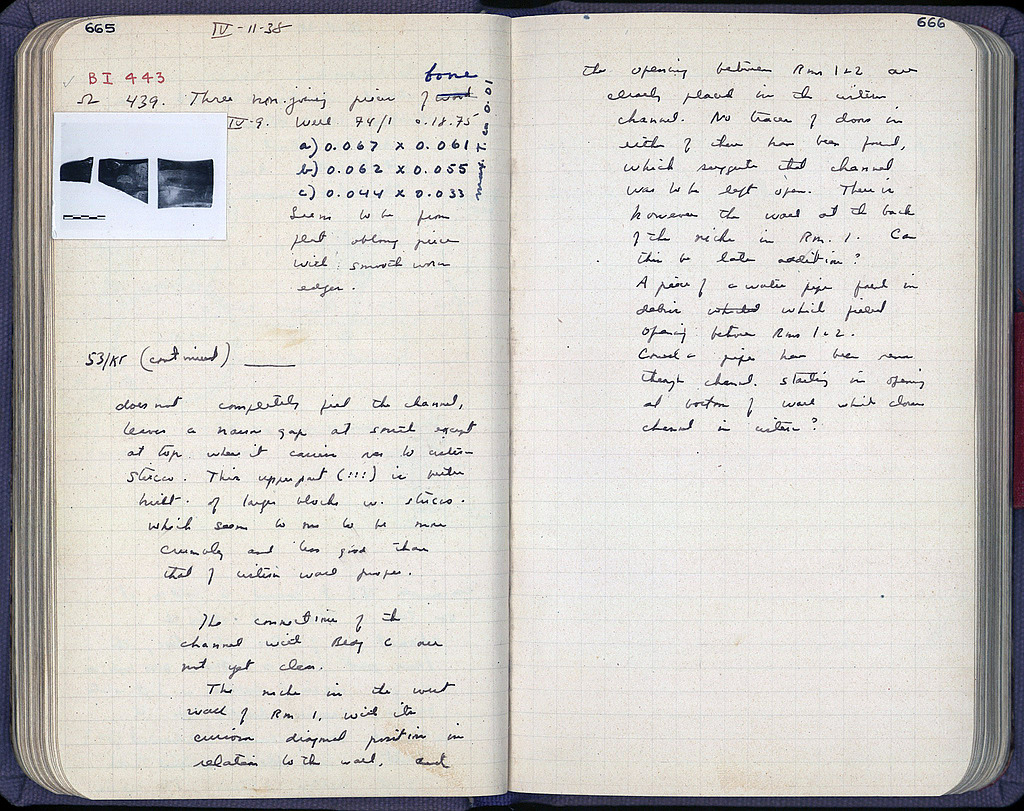 665
IV-11-38
BI 443
bone
Ω 439. Three non-joining pieces of wood
IV-9. Well 74/1 0.18.75
a) 0.067 x 0.061
b) 0.062 x 0.055
c) 0.044 x 0.033
max. T. ca 0.01
Seems to be from
flat oblong piece
with smooth worn
edges.
53/ΚΓ (continued)
does not completely fill the channel,
leaves a narrow gap at south except
at top where it carries over to cistern
stucco. This upper part (!!!) is better
built. of larger blocks w. stucco.
which seems to me to be more
crumbly and less good than
that of cistern wall proper.
The connections of the
channel with Bldg C are
not yet clear.
The niche in the west
wall of Rm 1, with its
curious diagonal position in
relation to the wall, and
666
the opening between Rms 1+2 are
clearly placed in the cistern
channel. No traces of doors in
either of them have been found,
which suggests that channel
was to be left open. There is
however the wall at the back
of the niche in Rm. 1. Can
this be later addition?
A piece of a water pipe found in
debris which filled
opening between Rms 1+2.
Could a pipe have been run
through channel. starting in opening
at bottom of wall which closes
channel in cistern?